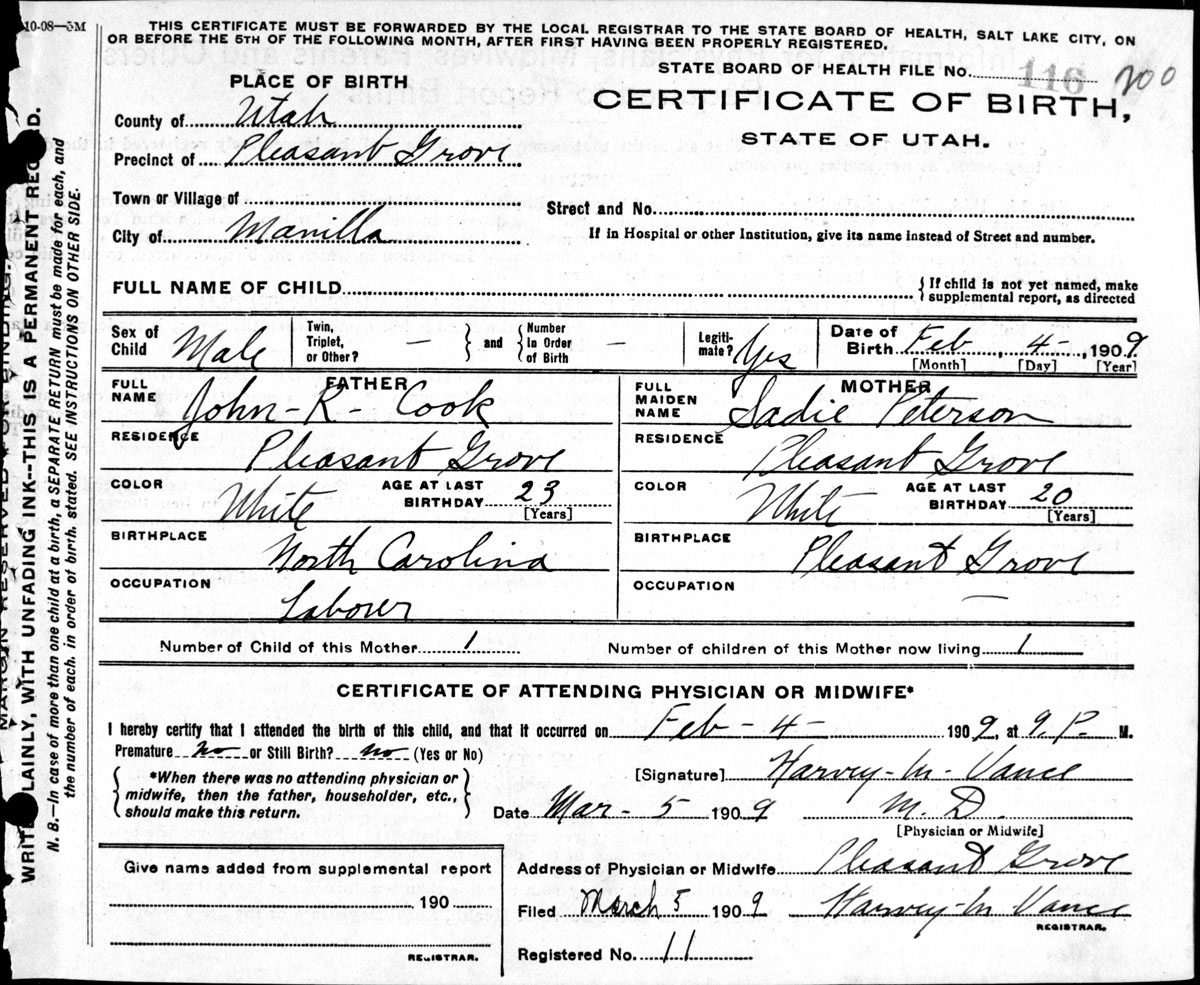 10-08—5M
THIS CERTIFICATE MUST BE FORWARDED BY THE LOCAL REGISTRAR TO THE STATE BOARD OF HEALTH, SALT LAKE CITY, ON
OR BEFORE THE 5TH OF THE FOLLOWING MONTH, AFTER FIRST HAVING BEEN PROPERLY REGISTERED.
PLACE OF BIRTH
STATE BOARD OF HEALTH FILE No. 116 200
CERTIFICATE OF BIRTH,
STATE OF UTAH.
County of Utah
Precinct of Pleasant Grove
Town or Village of
Street and No.
City of Manilla
If in Hospital or other Institution, give its name instead of Street and number.
FULL NAME OF CHILD
{ If child is not yet named, make
supplemental report, as directed
Sex of Child Male Twin, Triplet, or Other? — } and { Number In Order of Birth — Legiti-mate? Yes Date of Birth Feb, 4-, 1909
[Month] [Day] [Year]
FATHER
FULL NAME John-R- Cook
RESIDENCE Pleasant Grove
COLOR White AGE AT LAST BIRTHDAY 23
[Years]
BIRTHPLACE North Carolina
OCCUPATION Laborer
MOTHER
FULL MAIDEN NAME Sadie Peterson
RESIDENCE Pleasant Grove
COLOR White AGE AT LAST BIRTHDAY 20
[Years]
BIRTHPLACE Pleasant Grove
OCCUPATION —
Number of Child of this Mother 1 Number of children of this Mother now living 1
CERTIFICATE OF ATTENDING PHYSICIAN OR MIDWIFE*
I hereby certify that I attended the birth of this child, and that it occurred on Feb-4- 1909, at 9. P. M.
Premature No or Still Birth? No (Yes or No)
{ *When there was no attending physician or
midwife, then the father, householder, etc.,
should make this return. }
[Signature] Harvey-M-Vance
Date Mar-5 1909 M.D.
[Physician or Midwife]
Give name added from supplemental report
190
REGISTRAR.
Address of Physician or Midwife Pleasant Grove
Filed March 5 1909 Harvey-M Vance
REGISTRAR.
Registered No. 11
MARGIN RESERVED FOR BINDING.
WRITE PLAINLY, WITH UNFADING INK--THIS IS A PERMANENT RECORD.
N. B.—In case of more than one child at a birth, a SEPARATE RETURN must be made for each, and
the number of each, in order of birth, stated. SEE INSTRUCTIONS ON OTHER SIDE.